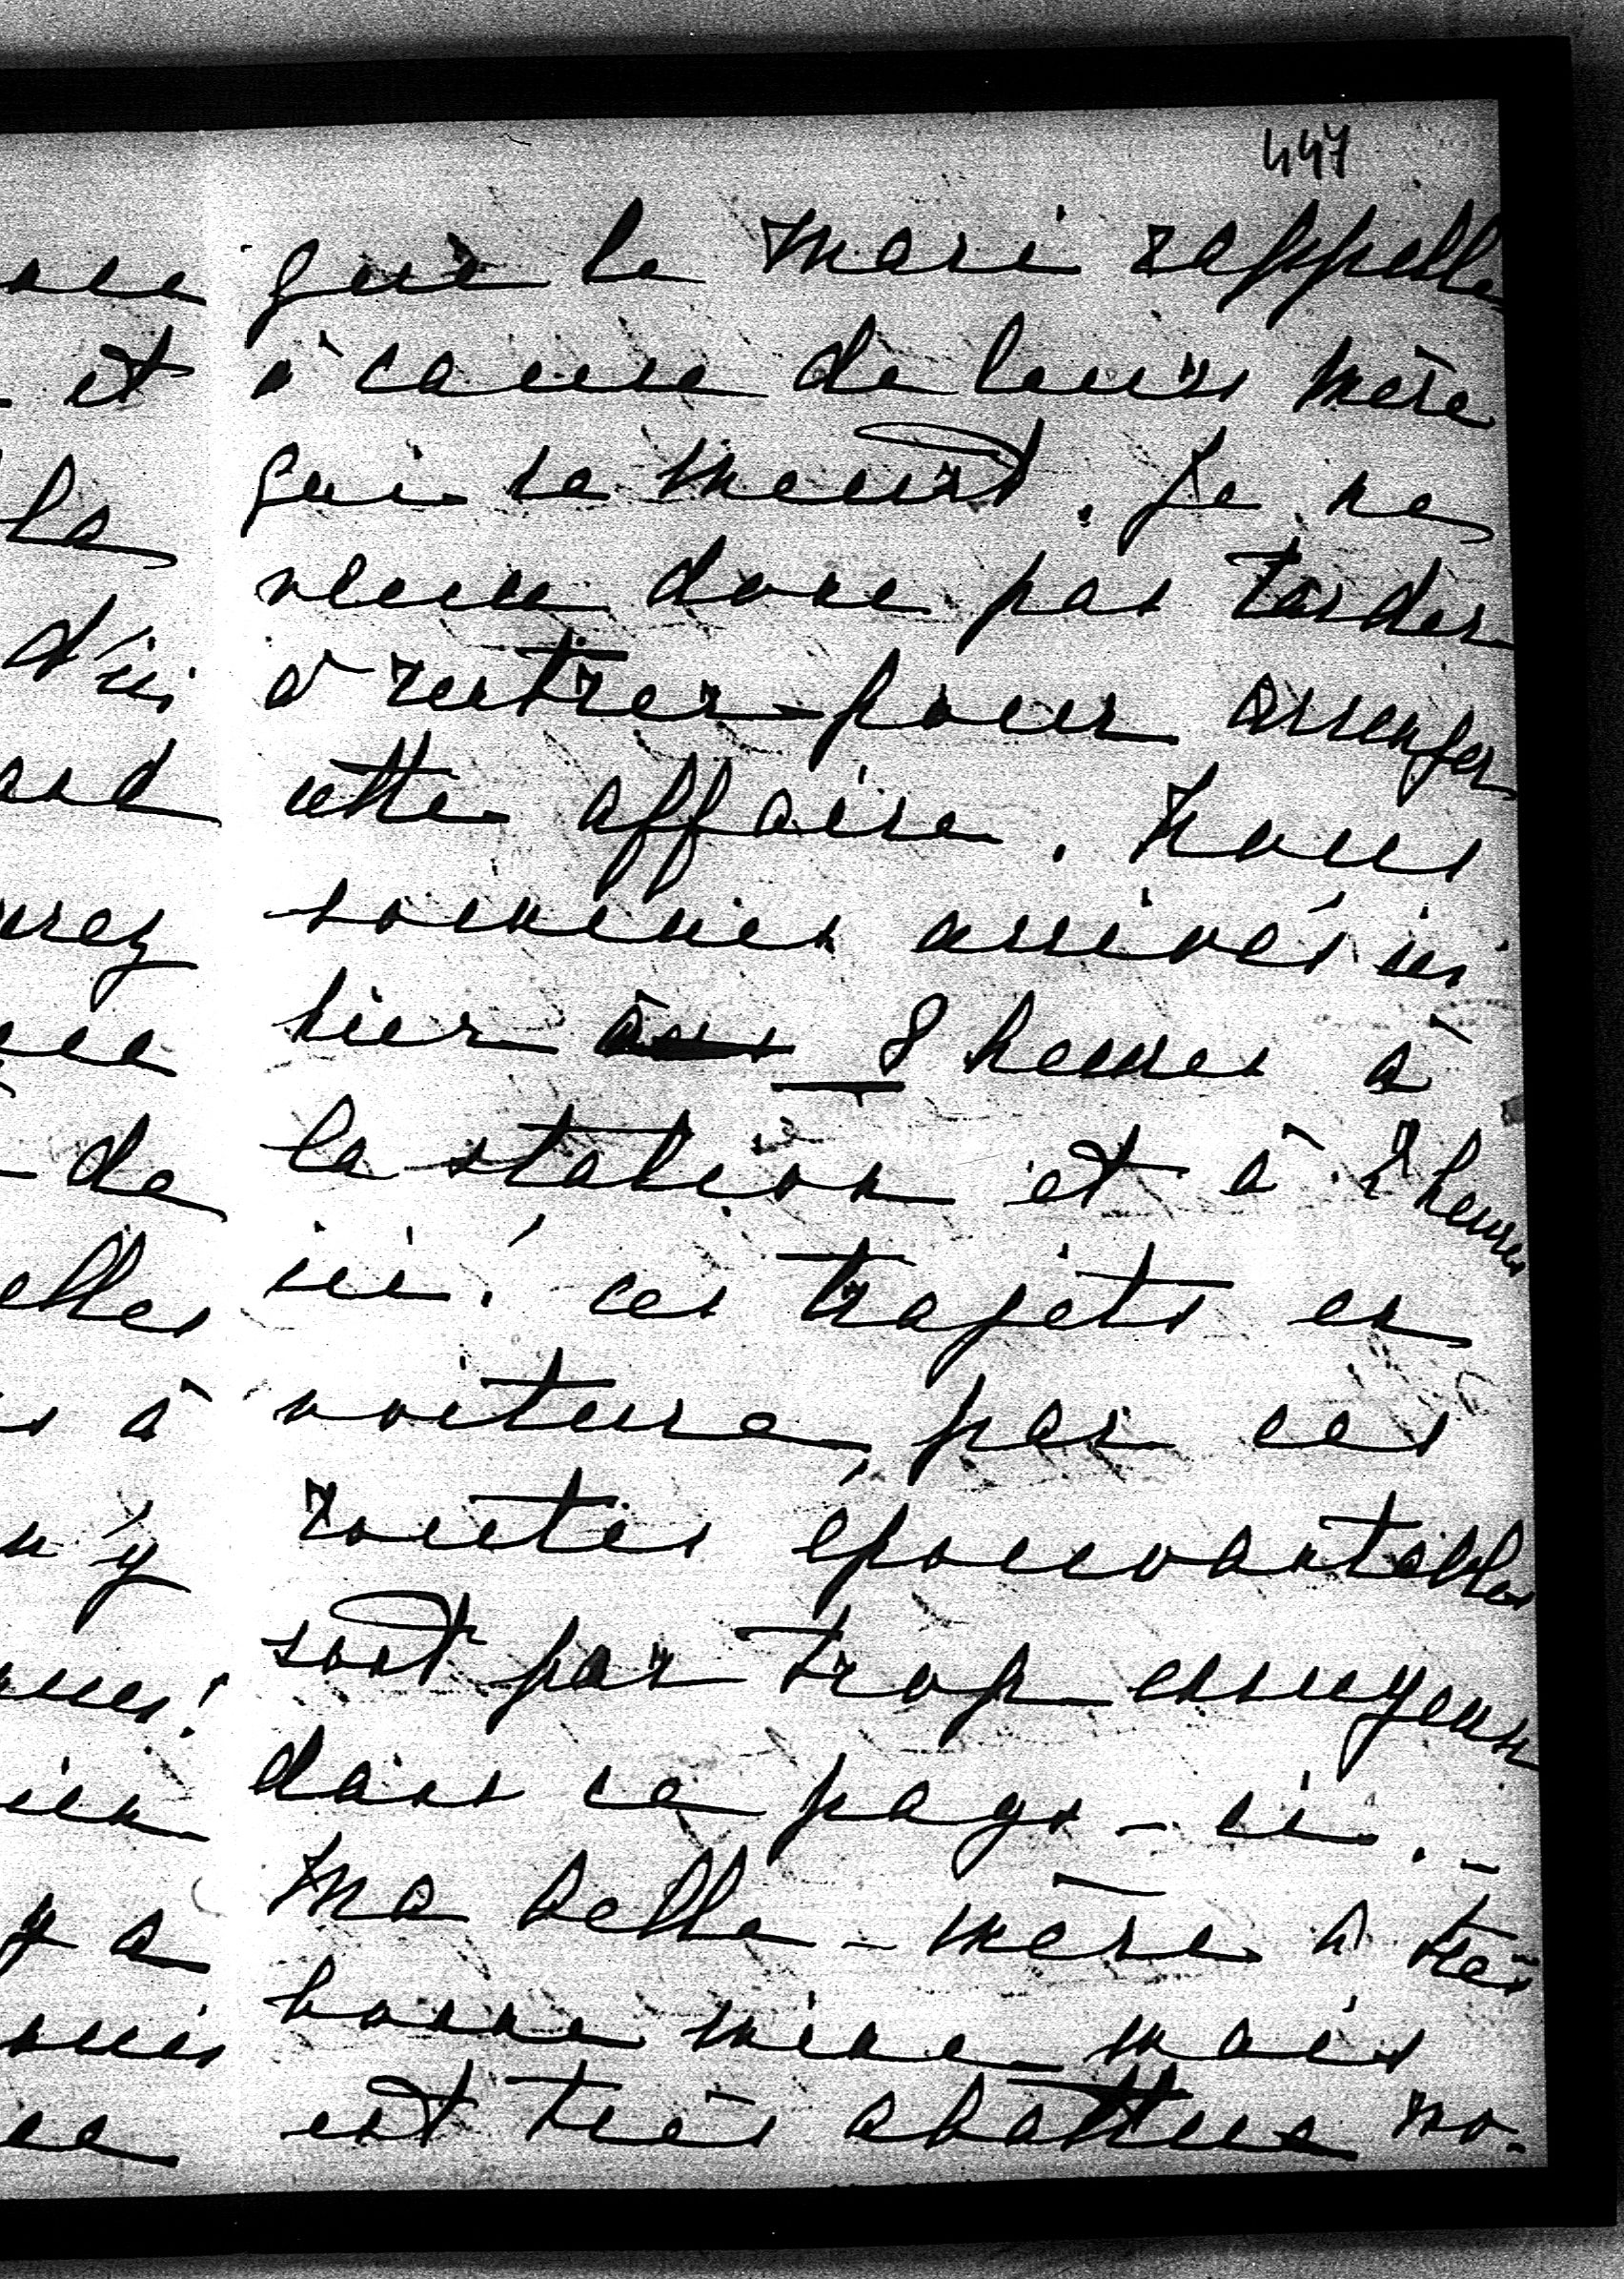 447
que le mari rappelle
à cause de leurs mère
qui se meurt. Je ne
veux donc pas tarder
à rentrer pour arranger
cette affaire. Nous
sommes arrivés ici
hier 8 heures à
la station et à 2 heures
ici! ces trajets en
voiture, par ces
routes épouvantables
sont par trop ennuyeux
dans ce pays-ci. –
Ma belle-mère a très
bonne mine mais
est très abattue mo-
et
la
d'ici
de
elles
à
n'y
y a